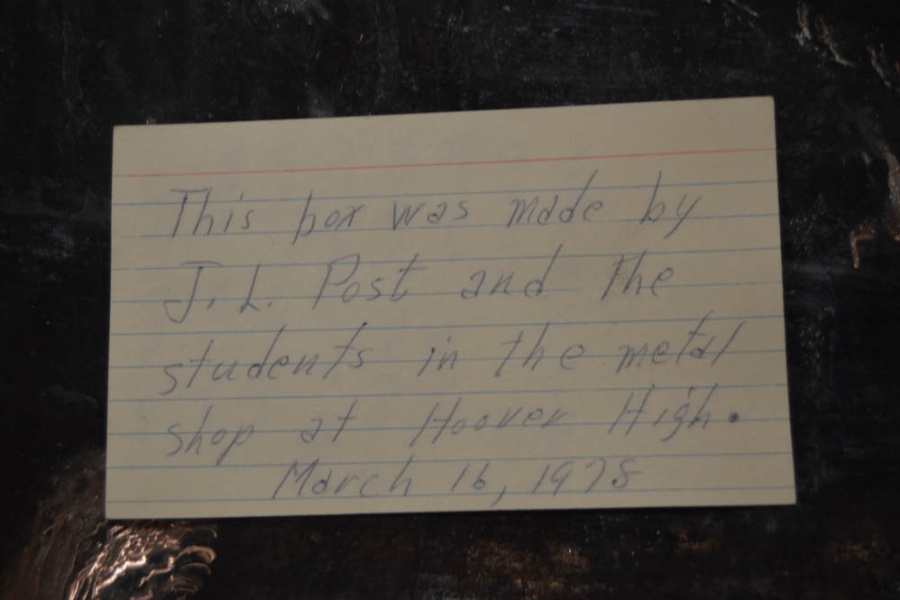 This box was made by
J. L. Post and the
students in the metal
shop at Hoover High.
March 16, 1978